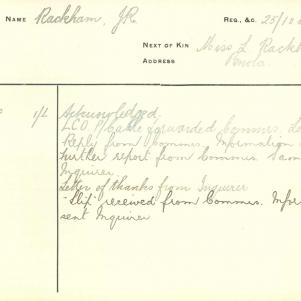 NAME Rackham, J.R. REG., &C. 25/10
NEXT OF KIN Miss L Rackh
ADDRESS Penola.
1/L Acknowledged.
LCO P/Cable forwarded Commrs. Lo
Reply from Commrs. Information
Further report from Commrs
Inquirer.
Letter of thanks from Inquirer
"Slip" received from Commrs. Infor
sent Inquirer